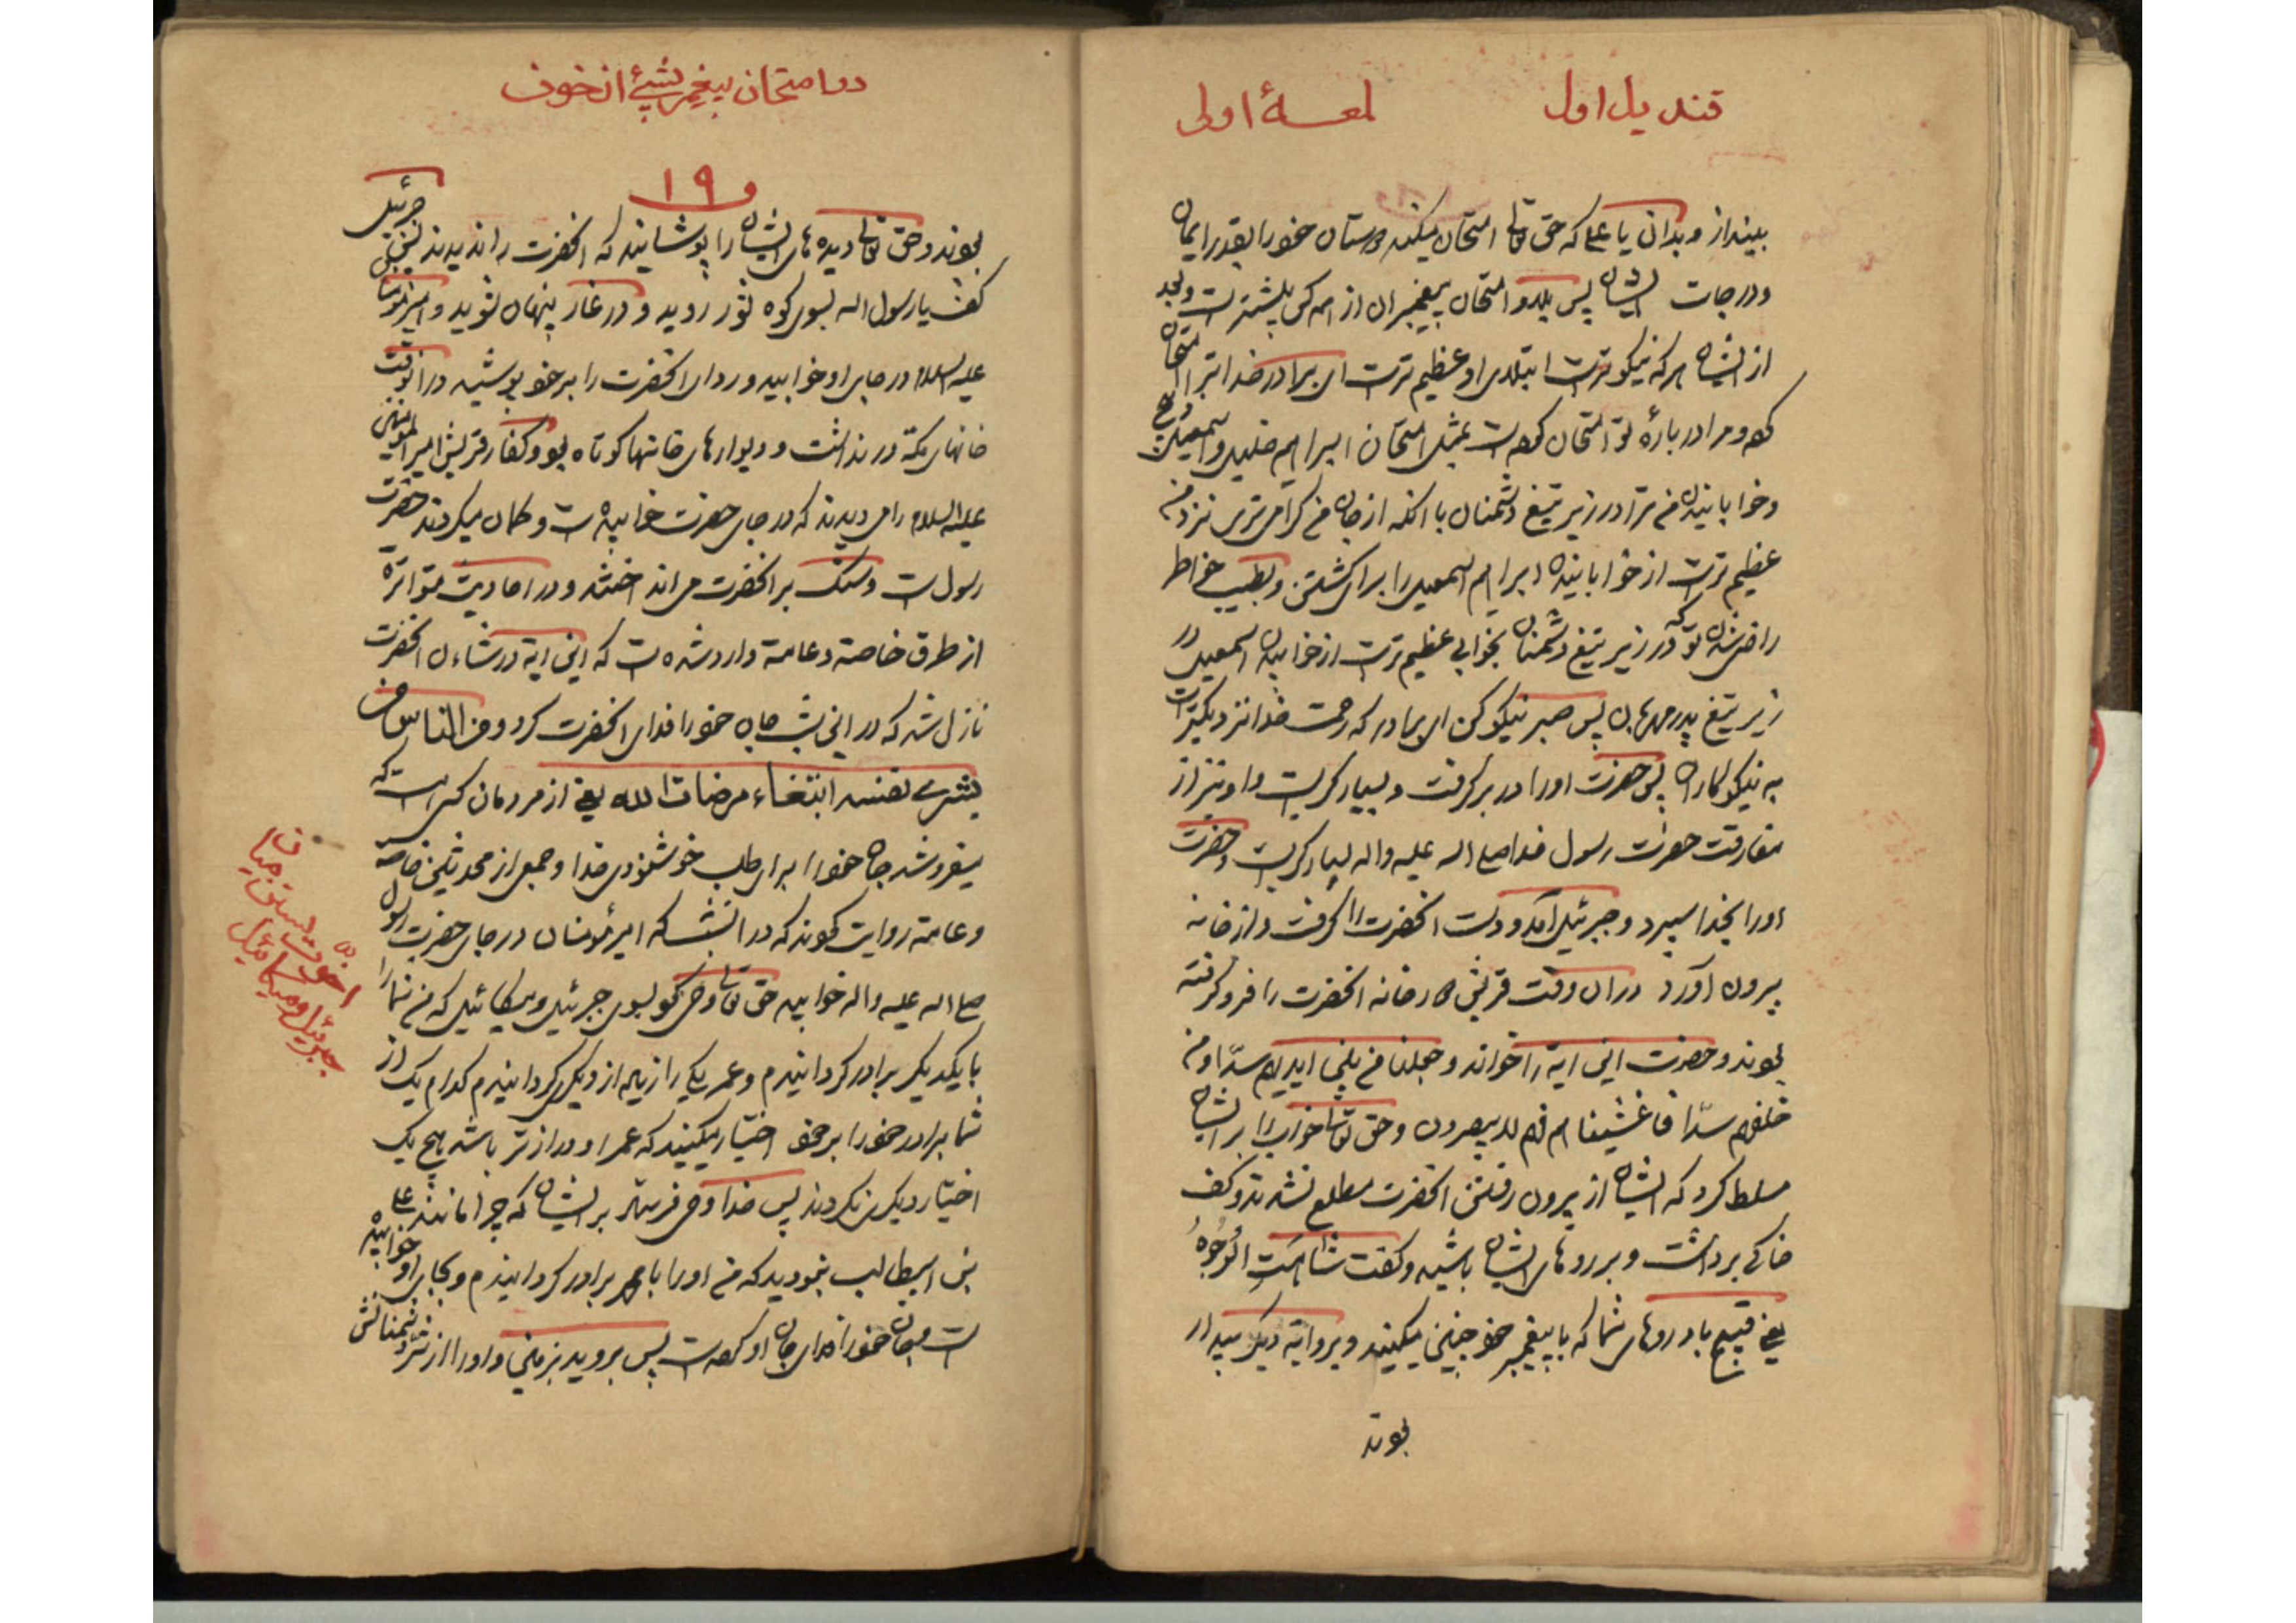 قندیل اول
لمعهٔ اولی
بیندازد و بدان یا علی که حق تعالی امتحان میکند دوستان خود را بقدر ایمان
و درجات ایشان پس بلا و امتحان پیغمبران از همه کس بیشتر است و بعد
از ایشان هر که نیکوتر است ابتلای او عظیم تر است ای برادر خدا ترا امتحان
کرده و مرا در بارهٔ تو امتحان کرده است بمثل امتحان ابراهیم خلیل و اسمعیل ذبیح
و خوابانیدن من ترا در زیر تیغ دشمنان با آنکه از جان من گرامی تری نزد من
عظیم تر است از خوابانیدن ابراهیم اسمعیل را برای کشتن و بطیب خاطر
راضی شدن تو که در زیر تیغ دشمنان بخوابی عظیم تر است از خوابیدن اسمعیل در
زیر تیغ پدر مهربان پس صبر نیکو کن ای برادر که رحمت خدا نزدیکتر است
به نیکوکاران پس حضرت او را در بر گرفت و بسیار گریست و او نیز از
مفارقت حضرت رسول خدا صلی الله علیه واله بسیار گریست و حضرت
او را بخدا سپرد و جبرئیل آمد و دست آنحضرت را گرفت و از خانه
بیرون آورد در آن وقت قریش خانه آنحضرت را فرو گرفته
بودند و حضرت این ایه را خواند و جعلنا من بین ایدیهم سدّا و من
خلفهم سدّا فاغشیناهم فهم لا یبصرون و حق تعالی خواب را بر ایشان
مسلط کرد که ایشان از بیرون رفتن آنحضرت مطلع نشدند و کف
خاکی برداشت و بر روهای ایشان پاشید و گفت شاهَت الوُجُوهُ
یعنی قبیح باد روهای شما که با پیغمبر خود چنین میکنید و بروایة دیگر بیدار
بودند
در امتحان پیغمبر
۱۹
بودند و حق تعالی دیده های ایشان را پوشانید که آنحضرت را ندیدند پس جبرئیل
گفت یا رسول الله بسوی کوه ثور روید و در غار پنهان شوید و امیرمؤمنان
علیه السلام در جای او خوابید و ردای آنحضرت را بر خود پوشید در آنوقت
خانهای مکة در نداشت و دیوارهای خانها کوتاه بود و کفار قریش امیرالمؤمنین
علیه السلام را می دیدند که در جای حضرت خوابیده است و گمان میکردند حضرت
رسول است و سنک بر آنحضرت می انداختند و در احادیث متواتره
از طرق خاصة و عامة وارد شده است که این ایة در شان آنحضرت
نازل شد که در این شب جان خود را فدای آنحضرت کرد و من الناس من
یشری نفسه ابتغاء مرضات الله یعنی از مردمان کسی است که
میفروشد جان خود را برای طلب خوشنودی خدا و جمعی از محدثین خاصة
و عامة روایت کرده اند که در آنشب که امیرمؤمنان در جای حضرت رسول
صلی الله علیه واله خوابید حق تعالی وحی کرد بسوی جبرئیل و میکائیل که من شما را
با یکدیگر برادر گردانیدم و عمر یکی را زیاده از دیگری گردانیدم کدام یک از
شما برادر خود را بر خود اختیار میکنید که عمر او درازتر باشد هیچ یک
اختیار دیگری نکردند پس خدا وحی فرستاد بر ایشان که چرا مانند علی
بن ابیطالب نبودید که من او را با محمد برادر گردانیدم و بجای او خوابیده
است و جان خود را فدای جان او کرده است پس بروید بزمین و او را از شر دشمنانش
اخوت
جبرئیل و میکائیل